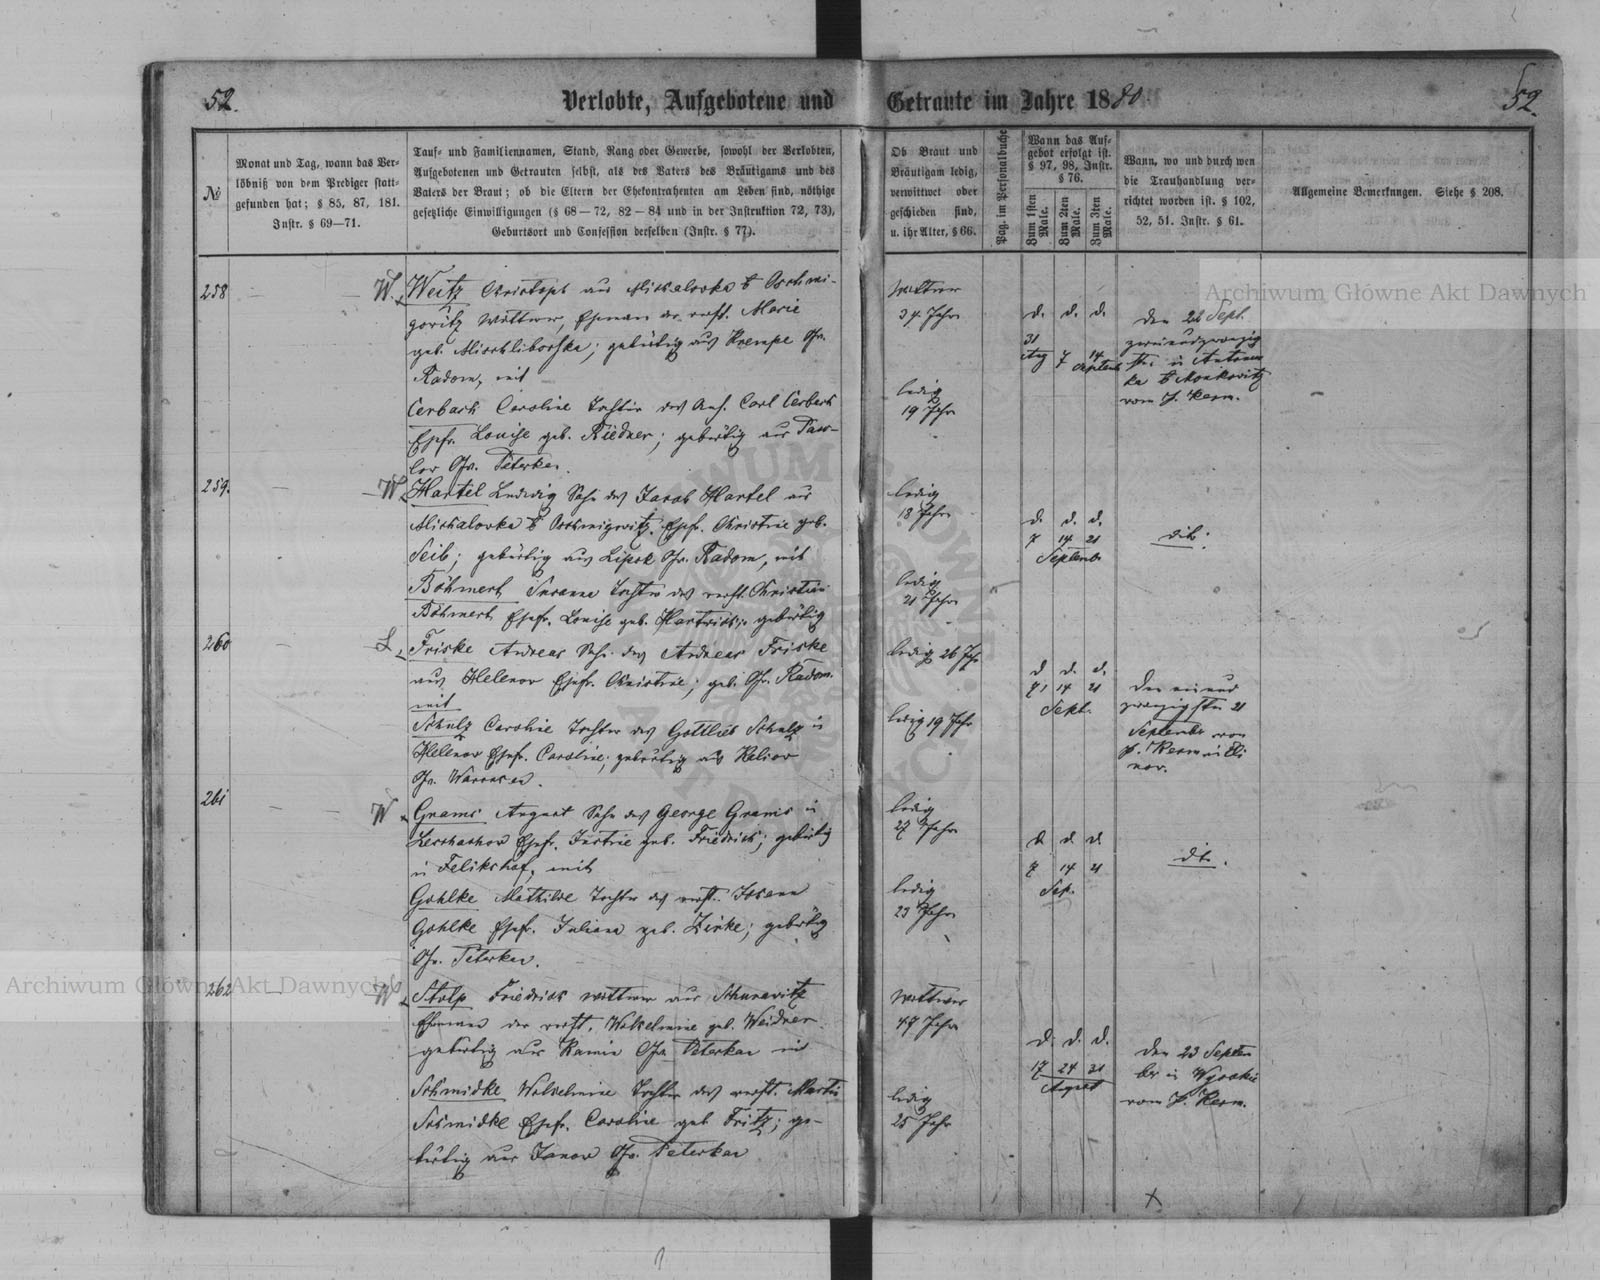 52.
Verlobte, Aufgebotene und Getraute im Jahre 1880
52.
№
Monat und Tag, wann das Ver-
löbniß von dem Prediger statt-
gefunden hat; § 85, 87, 181.
Instr. § 69—71.
Tauf- und Familiennamen, Stand, Rang oder Gewerbe, sowohl der Verlobten,
Aufgebotenen und Getrauten selbst, als des Vaters des Bräutigams und des
Vaters der Braut; ob die Eltern der Ehekontrahenten am Leben sind, nöthige
gesetzliche Einwilligungen (§ 68—72, 82—84 und in der Instruktion 72, 73),
Geburtsort und Confession derselben (Instr. § 77).
Ob Braut und
Bräutigam ledig,
verwittwet oder
geschieden sind,
u. ihr Alter, § 66.
Pag. im Personalbuche
Wann das Auf-
gebot erfolgt ist.
§ 97, 98, Instr.
§ 76.
Zum 1sten Male.
Zum 2ten Male.
Zum 3ten Male.
Wann, wo und durch wen
die Trauhandlung ver-
richtet worden ist. § 102,
52, 51. Instr. § 61.
Allgemeine Bemerkungen. Siehe § 208.
258
W. Weitz Christoph aus Michalovka b Oschmi-
goritz Wittwer, Eheman der verst. Marie
geb. gebürtig aus Krempe Gv.
Radom, mit
Cerbach Caroline Tochter des Carl Cerbach
Ehefr. Louise geb. Riedner; gebürtig aus Paw-
low Gv. Peterkau.
Wittwer
34 Jahr
ledig
19 Jahr
d. d. d.
31 Aug 7 14 Septemb
Den 22 Sept.
zweiundzwanzig
sten in Antonow
ka b
vom P. Kern.
259.
W. Hartel Ludwig Sohn des Jacob Hartel aus
Michalovka b Oschmigovitz. Ehefr. Christine geb.
Seib; gebürtig aus Lipsk Gv. Radom, mit
Böhmert Susanna Tochter des verst. Christian
Böhmert Ehefr. Louise geb. Hartwich; gebürtig
ledig
18 Jahr
ledig
21 Jahr
d. d. d.
7 14 21
Septemb
dito.
260
L. Friske Andreas Sohn des Andreas Friske
aus Helenow Ehefr. Christine; geb. Gv. Radom.
mit
Schulz Caroline Tochter des Gottlieb Schulz in
Helenow Ehefr. Caroline; gebürtig aus
Gv. Warschau.
ledig 26 Jahr
ledig 19 Jahr
d d. d.
7 14 21
Sept.
Den ein und
zwanzigsten 21
September von
P. Kern in Eli
nov.
261
W Grams August Sohn des George Grams in
Ehefr. Justine geb. Friedrich; gebürtig
in Felikshof, mit
Gohlke Mathilde Tochter des verst. Johann
Gohlke Ehefr. Juliana geb. Zirke; gebürtig
Gv. Peterkau.
ledig
27 Jahr
ledig
23 Jahr
d d d
7 14 21
Sep.
dit.
262
W Stolp Friedrich Wittwer aus
Eheman der verst. Wilhelmine geb. Weidner
gebürtig aus Kamin Gv. Peterkau mit
Schmidke Wilhelmine Tochter des verst. Martin
Schmidke Ehefr. Caroline geb Fritz; ge-
bürtig aus Janow Gv. Peterkau
Wittwer
47 Jahr
ledig
25 Jahr
d. d. d.
17 24 31
August
Den 23 Septem
ber in Wysokie
vom P. Kern.
Archiwum Główne Akt Dawnych
Archiwum Główne Akt Dawnych